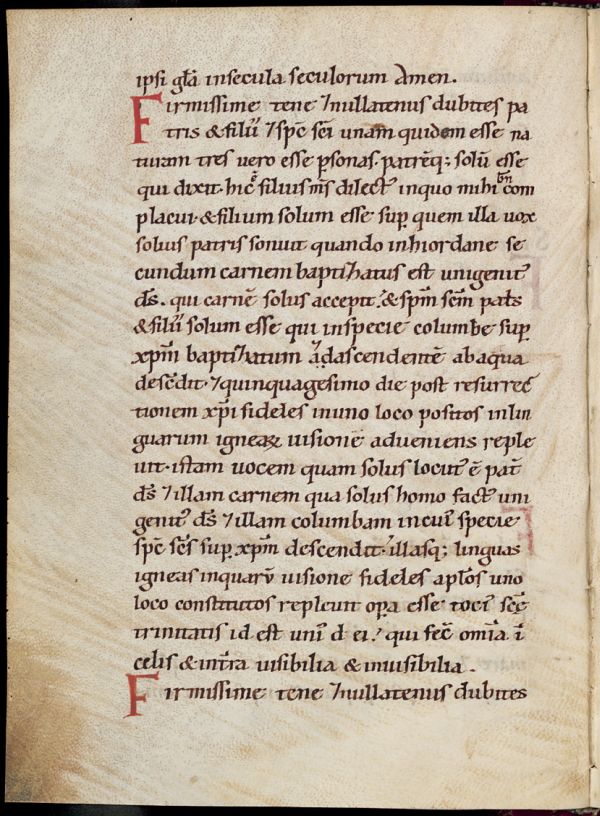 ipsi gl̄a in secula seculorum Amen.
Firmissime tene ⁊ nullatenus dubites pa
tris & filii ⁊ sp̄c sc̄i unam quidem esse na
turam tres vero esse p̱sonas. patrēq; solū esse
qui dixit. hic ē filius m̄s dilect᷒ in quo mihi bn̄ com
placui. & filium solum esse sup̱ quem illa uox
solius patris sonuit quando in hiordane se
cundum carnem baptizatus est unigenit᷒
d̄s. qui carnē solus accepit. & sp̄m sc̄m pat̄s
& filii solum esse qui in specie columbe sup̱
xp̄m baptizatum ascendentē ab aqua
descēdit. ⁊ quinquagesimo die post resurrec
tionem xp̄i fideles in uno loco positos in lin
guarum igneaꝝ uisione adueniens reple
uit. istam uocem quam solus locut᷒ ē pat̄
d̄s ⁊ illam carnem qua solus homo fact᷒ uni
genit᷒ d̄s ⁊ illam columbam in cui᷒ specie
sp̄c sc̄s sup̱ xp̄m descendit. illasq; linguas
igneas in quarū uisione fideles ap̄los uno
loco constitutos repleuit op̱a esse toci᷒ sc̄e
trinitatis id est uni᷒ dei. qui fec̄ om̄ia ī
celis & int̄ra uisibilia & inuisibilia.
Firmissime tene ⁊ nullatenus dubites